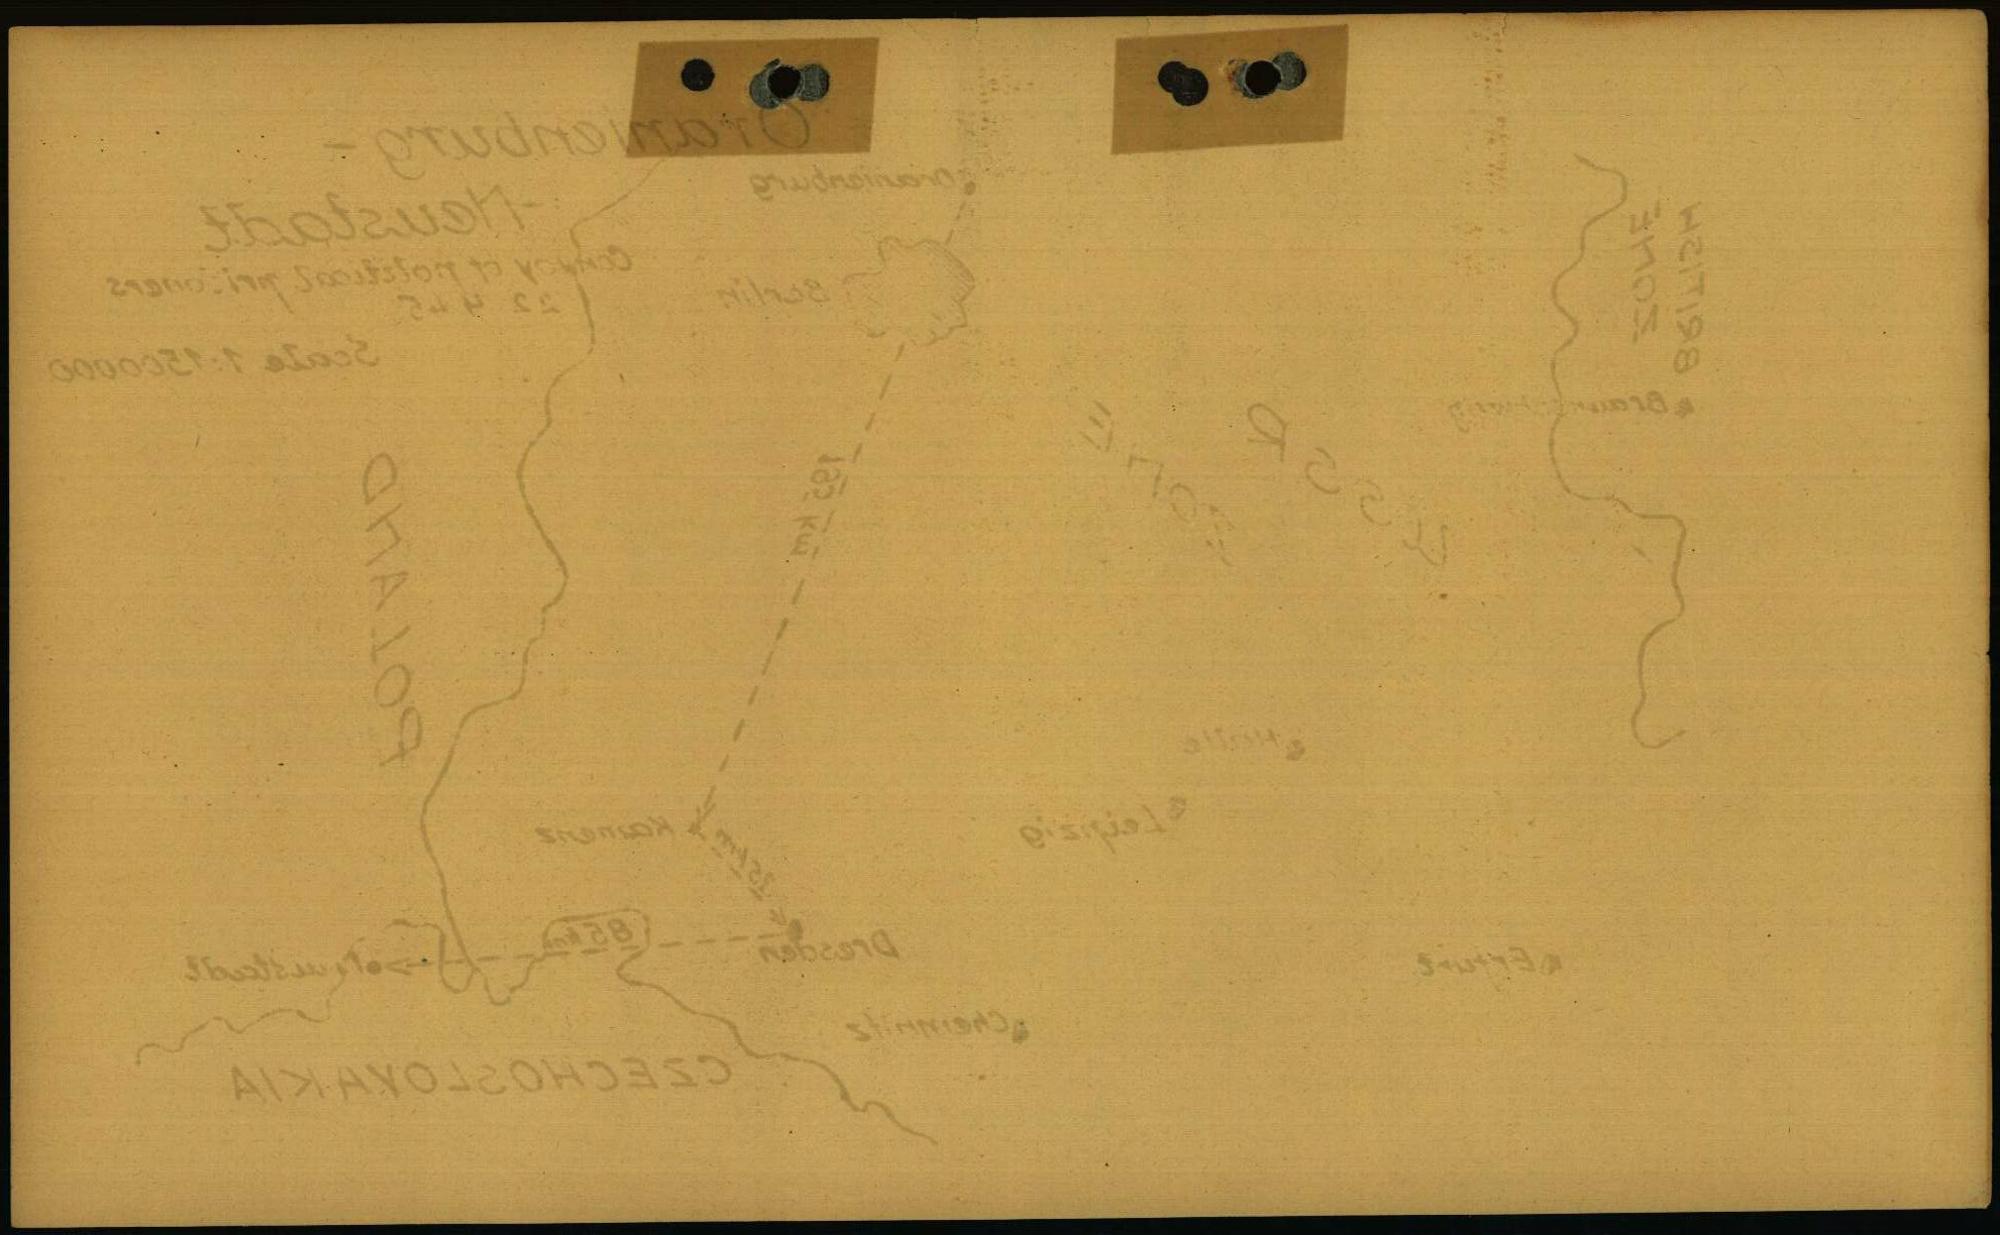 Oranienburg -
- Neustadt
Convoy of political prisoners
22 4 45
Scale 1:1500000
Oranienburg
Berlin
BRITISH
ZONE
Braunschweig
USSR
ZONE
POLAND
195 km
Halle
Leipzig
Kamenz
35 km
Dresden
85 km
Neustadt
Erfurt
Chemnitz
CZECHOSLOVAKIA